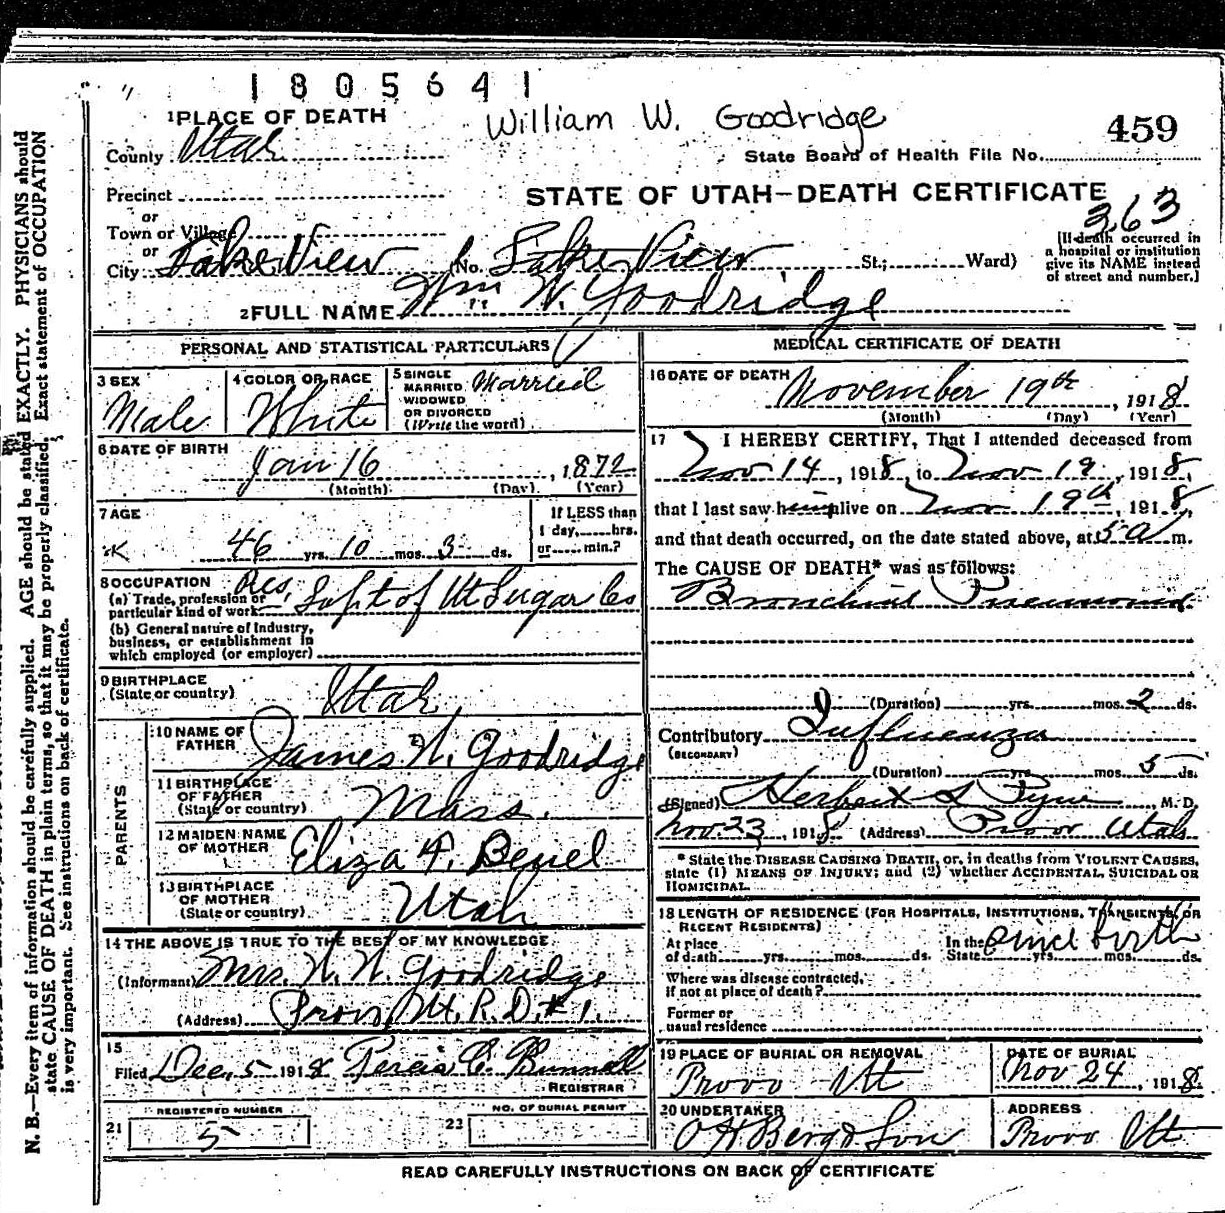 1805641
1 PLACE OF DEATH
William W. Goodridge
459
County Utah
State Board of Health File No.
Precinct
STATE OF UTAH—DEATH CERTIFICATE
or
363
Town or Village
or
City Lake View No. Lake View St.; Ward)
[If death occurred in
a hospital or institution
give its NAME instead
of street and number.]
2 FULL NAME Wm W. Goodridge
PERSONAL AND STATISTICAL PARTICULARS
3 SEX
Male
4 COLOR OR RACE
White
5 SINGLE
MARRIED
WIDOWED
OR DIVORCED
(Write the word)
Married
6 DATE OF BIRTH
Jan 16, 1872
(Month) (Day) (Year)
7 AGE
46 yrs. 10 mos. 3 ds.
If LESS than
1 day, hrs.
or min.?
8 OCCUPATION
(a) Trade, profession or
particular kind of work Supt of Ut Sugar Co
(b) General nature of industry,
business, or establishment in
which employed (or employer)
9 BIRTHPLACE
(State or country)
Utah
PARENTS
10 NAME OF
FATHER
James W. Goodridge
11 BIRTHPLACE
OF FATHER
(State or country)
Mass.
12 MAIDEN NAME
OF MOTHER
Eliza
13 BIRTHPLACE
OF MOTHER
(State or country)
Utah
14 THE ABOVE IS TRUE TO THE BEST OF MY KNOWLEDGE
(Informant) Mrs. W. W. Goodridge
(Address) Provo, Ut. R. D. # 1.
15
Filed Dec. 5 1918 C. Bunnell
REGISTRAR
21
REGISTERED NUMBER
5
23
NO. OF BURIAL PERMIT
MEDICAL CERTIFICATE OF DEATH
16 DATE OF DEATH
November 19th, 1918
(Month) (Day) (Year)
17 I HEREBY CERTIFY, That I attended deceased from
Nov 14, 1918, to Nov 19, 1918,
that I last saw him alive on Nov 19th, 1918,
and that death occurred, on the date stated above, at 5 a m.
The CAUSE OF DEATH* was as follows:
Bronchial Pneumonia
(Duration) yrs. mos. 2 ds.
Contributory Influenza
(SECONDARY)
(Duration) yrs. mos. 5 ds.
(Signed) Herbert S Pyne, M. D.
Nov 23, 1918 (Address) Provo Utah
* State the DISEASE CAUSING DEATH, or, in deaths from VIOLENT CAUSES,
state (1) MEANS OF INJURY; and (2) whether ACCIDENTAL, SUICIDAL OR
HOMICIDAL.
18 LENGTH OF RESIDENCE (FOR HOSPITALS, INSTITUTIONS, TRANSIENTS, OR
RECENT RESIDENTS)
At place
of death yrs. mos. ds.
In the
State yrs. mos. ds.
since birth
Where was disease contracted,
if not at place of death?
Former or
usual residence
19 PLACE OF BURIAL OR REMOVAL
Provo Ut
DATE OF BURIAL
Nov 24, 1918
20 UNDERTAKER
O H Berg & Son
ADDRESS
Provo Ut
READ CAREFULLY INSTRUCTIONS ON BACK OF CERTIFICATE
N. B.—Every item of information should be carefully supplied. AGE should be stated EXACTLY. PHYSICIANS should
state CAUSE OF DEATH in plain terms, so that it may be properly classified. Exact statement of OCCUPATION
is very important. See instructions on back of certificate.